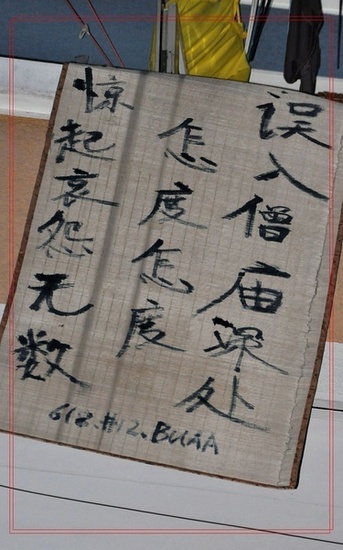 误入僧庙深处
怎度怎度
惊起哀怨无数
618.#12.BUAA